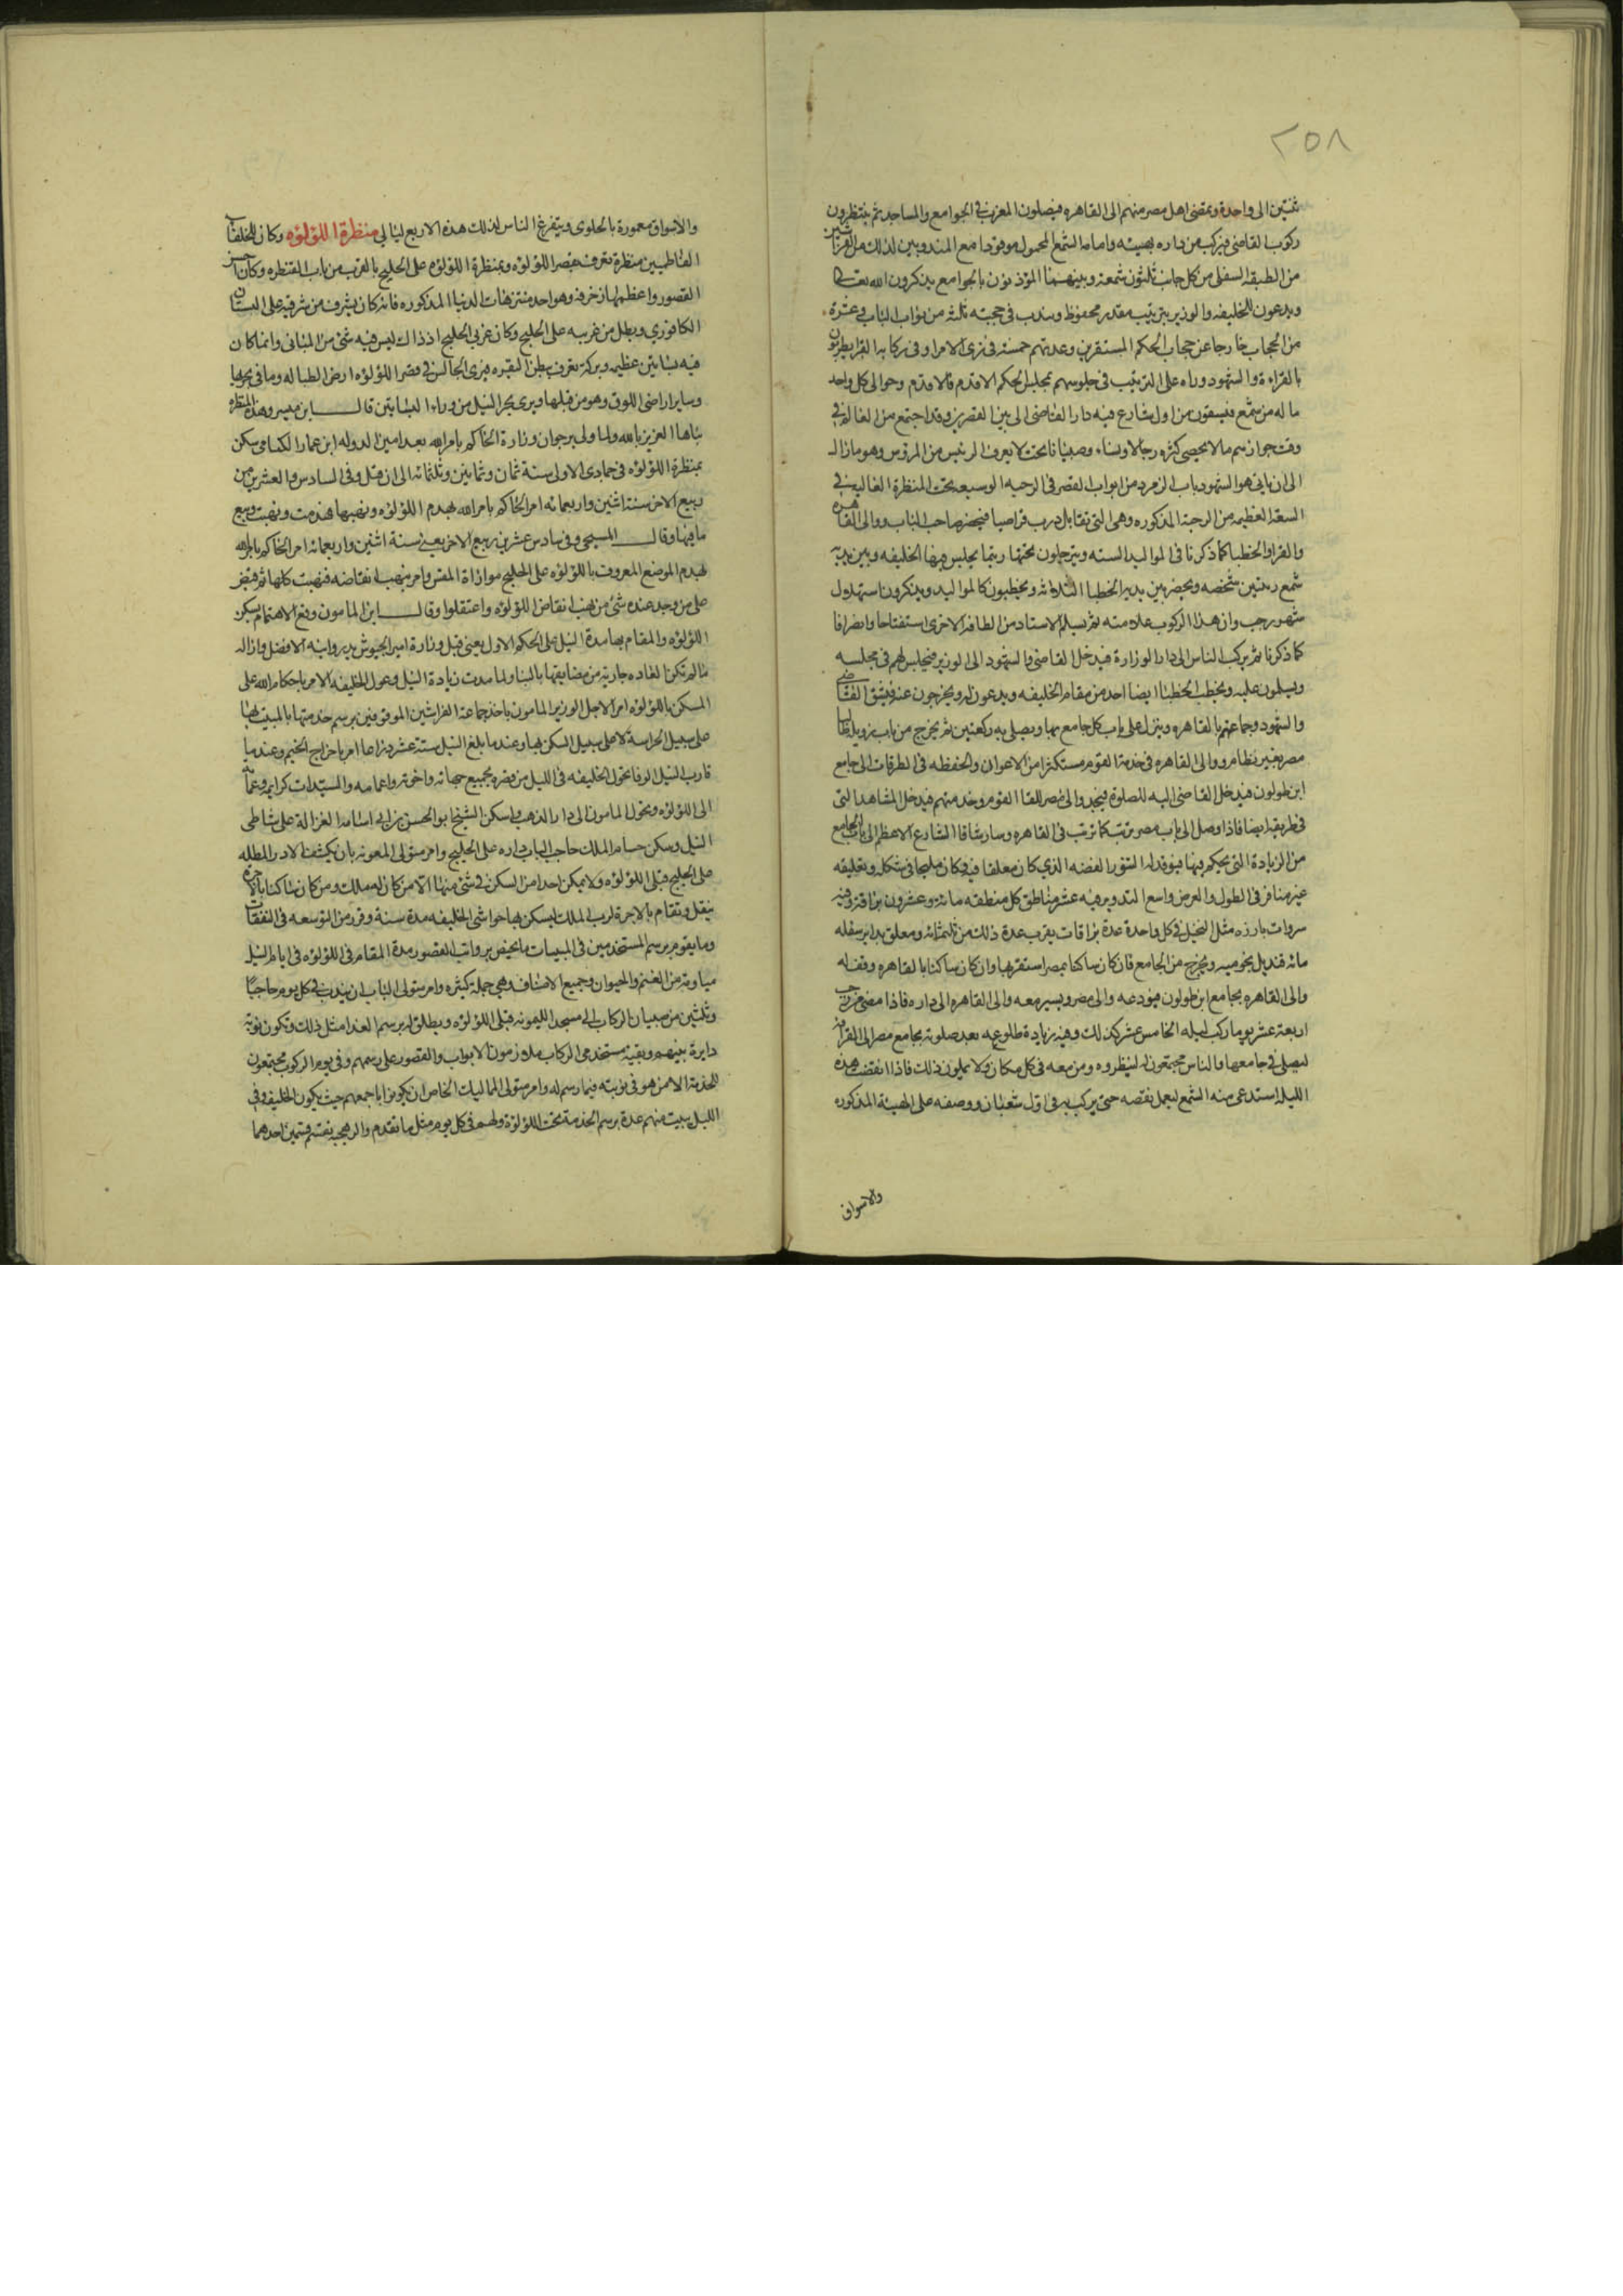 ٢٥٨
ثنتين الى واحدة ويمضى اهل مصر منهم الى القاهره فيصلون المغرب فى الجوامع والمساجد ثم ينتظرون
ركوب القاضى فيركب من داره بهيئته وامامه الشمع المحمول موقودا مع المندوبين لذلك من الفراشين
من الطبقه السفلى من كل جانب ثلثون شمعة وبينهما المؤذنون بالجوامع يذكرون الله تعالى
ويدعون للخليفه والوزير بترتيب مقدر محفوظ ويندب فى حجبته ثلثه من نواب الباب وعشرة
من الحجاب خارجا عن حجاب الحكم المستقرين وعدتهم خمسة فى زى الامرا وفى ركابه القرا يطربون
بالقراءة والشهود وراه على الترتيب فى جلوسهم بمجلس الحكم الاقدم فالاقدم وحوالى كل واحد
ما له من شمع فيشقون من اول شارع فيه دار القاضى الى بين القصرين وقد اجتمع من العالم فى
وقت جوازهم ما لا يحصى كثره رجالا ونساء وصبيانا بحيث لا يعرف الرئيس من المرؤس وهو مار
الى ان ياتى هو والشهود باب الزمرد من ابواب القصر فى الرحبه الوسيعه تحت المنظرة العاليه فى
السعة العظيمه من الرحبة المذكوره وهى التى تقابل درب قراصيا فيحضر صاحب الباب ووالى القاهره
والقرا والخطبا كما ذكرنا فى الموالد السته ويترجلون تحتها ريثما يجلس فيها الخليفه وبين يديه
شمع وتبين شخصه ويحضر بين يديه الخطبا الثلاثه ويخطبون كالمواليد ويذكرون استهلال
شهر رجب وان هذا الركوب علامته ثم يسلم الاستاد من الطاقة الاخرى استفتاحا وانصرافا
كما ذكرنا ثم يركب الناس الى دار الوزارة فيدخل القاضى والشهود الى الوزير فيجلس لهم فى مجلسه
ويسلمون عليه ويخطب الخطبا ايضا اخف من مقام الخليفه ويدعون له ويخرجون عنه فيشق القاضى
والشهود وجماعتهم بالقاهره وينزل على باب كل جامع بها ويصلى به ركعتين ثم يخرج من باب زويله طالبا
مصر بغير نظام ووالى القاهره فى خدمة القوم مستكثرا من الاعوان والحفظه فى الطرقات الى جامع
ابن طولون فيدخل القاضى اليه للصلوة فيجد والى مصر للقا القوم وخدمتهم فيدخل المشاهد التى
فى طريقه ايضا فاذا وصل الى باب مصر ترتب كما ترتب فى القاهره وسار شاقا الشارع الاعظم الى باب الجامع
من الزيادة التى يحكم فيها فيوقد له التنور الفضه الذى كان معلقا فيه وكان مليحا فى شكله وتعليقه
غير منافر فى الطول والعرض واسع التدوير فيه عشر مناطق كل منطقه مائة وعشرون بزاقة وفيه
سروات بارزه مثل النخيل فى كل واحدة عدة بزاقات يقرب عدة ذلك من ثلثمائه ومعلق بداير سفله
مائه قنديل نجوميه ويخرج من الجامع فان كان ساكنا بمصر استقر بها وان كان ساكنا بالقاهره وقف له
والى القاهره بجامع ابن طولون فيودعه والى مصر ويسير معه والى القاهره الى داره فاذا مضى من رجب
اربعة عشر يوما ركب ليله الخامس عشر كذلك وفيه زيادة طلوعه بعد صلوته بجامع مصر الى القرافه
ليصلى فى جامعها والناس مجتمعون له لينظروه ومن معه فى كل مكان ولا يملون ذلك فاذا انقضت هذه
الليله استدعى منه الشمع ليعمل نقصه حتى يركب به فى اول شعبان ووصفه على الهيئة المذكوره
والاسواق
والاسواق معمورة بالحلوى ويتفرغ الناس لذلك هذه الاربع ليالى منظرة اللؤلؤه وكان للخلفا
الفاطميين منظرة تعرف بقصر اللؤلؤه وبمنظرة اللؤلؤه على الخليج بالقرب من باب القنطره وكان احسن
القصور واعظمها زخرفه وهو احد منتزهات الدنيا المذكوره فانه كان يشرف من شرقيه على البستان
الكافورى ويطل من غربيه على الخليج وكان غربى الخليج اذ ذاك ليس فيه شئ من المبانى وانما كان
فيه بساتين عظيمه وبركة تعرف ببطن البقره فيرى الجالس فى قصر اللؤلؤه ارض الطباله وما فى بحريها
وساير اراضى اللوق وهو من قبلها ويرى بحر النيل من وراء البساتين قال ابن ميسر وهذه المنظره
بناها العزيز بالله ولما ولى برجوان وزارة الحاكم بامر الله بعد امين الدوله ابن عمار الكتامى سكن
بمنظرة اللؤلؤه فى جمادى الاولى سنة ثمان وثمانين وثلثمائه الى ان قتل وفى السادس والعشرين من
ربيع الاخر سنة اثنين واربعمائه امر الحاكم بامر الله بهدم اللؤلؤه ونهبها فهدمت ونهبت وبيع
ما فيها وقال المسبحى وفى سادس عشرين ربيع الاخر يعنى سنة اثنين واربعمائه امر الحاكم بامر الله
بهدم الموضع المعروف باللؤلؤه على الخليج موازاة المقس وامر بنهب انقاضه فنهبت كلها ثم قبض
على من وجد عنده شئ من نهب انقاض اللؤلؤه واعتقلوا وقال ابن المامون وقع الاهتمام بسكن
اللؤلؤه والمقام بها مدة النيل على الحكم الاول يعنى قبل وزارة امير الجيوش بدر وابنه الافضل وازاله
ما لم تكن العاده جارية به من مضايقها بالبنا ولما بدت زيادة النيل وعول الخليفه الامر باحكام الله على
السكن باللؤلؤه امر الاجل الوزير المامون باخذ جماعة الفراشين الموقوفين برسم خدمتها بالمبيت بها
على سبيل الحراسة لا على سبيل السكن بها وعند ما بلغ النيل ستة عشر ذراعا امر باخراج الخيم وعند ما
قارب النيل الوفا تحول الخليفه فى الليل من قصره بجميع جهاته واخوته واعمامه والسيدات كرايمه وعماته
الى اللؤلؤه وتحول المامون الى دار الذهب واسكن الشيخ ابو الحسن بن ابى اسامه الغزالة على شاطى
النيل وسكن حسام الملك حاجب الباب داره على الخليج وامر متولى المعونه بان يكشف الادر المطله
على الخليج قبلى اللؤلؤه ولا يمكن احدا من السكن فى شئ منها الا من كان له ملك ومن كان ساكنا بالاجره
ينقل وتقام بالاجرة لرب الملك ليسكن بها حواشى الخليفه مدة سنة وقرر من التوسعه فى النفقات
وما يقوم برسم المستخدمين فى المبيتات ما يختص برواتب القصور مدة المقام فى اللؤلؤه فى ايام النيل
مياومة من الغنم والحيوان وجميع الاصناف وهى جملة كثيره وامر متولى الباب ان يندب فى كل يوم حاجبا
وثلثين من صبيان الركاب الى مسجد الليمونه قبلى اللؤلؤه ويطلق لهم برسم الغدا مثل ذلك وتكون نوبة
دايرة بينهم وبقية مستخدمى الركاب ملازمون الابواب والقصور على رسمهم وفى يوم الركوب يجتمعون
للخدمة الا من هو فى نوبته فيما رسم له وامر متولى المماليك الخاص ان يكونوا باجمعهم حيث يكون الخليفه وفى
الليل يبيت منهم عدة برسم الخدمة تحت اللؤلؤة ولهم فى كل يوم مثل ما تقدم والرهجيه تقسم قسمين احدهما